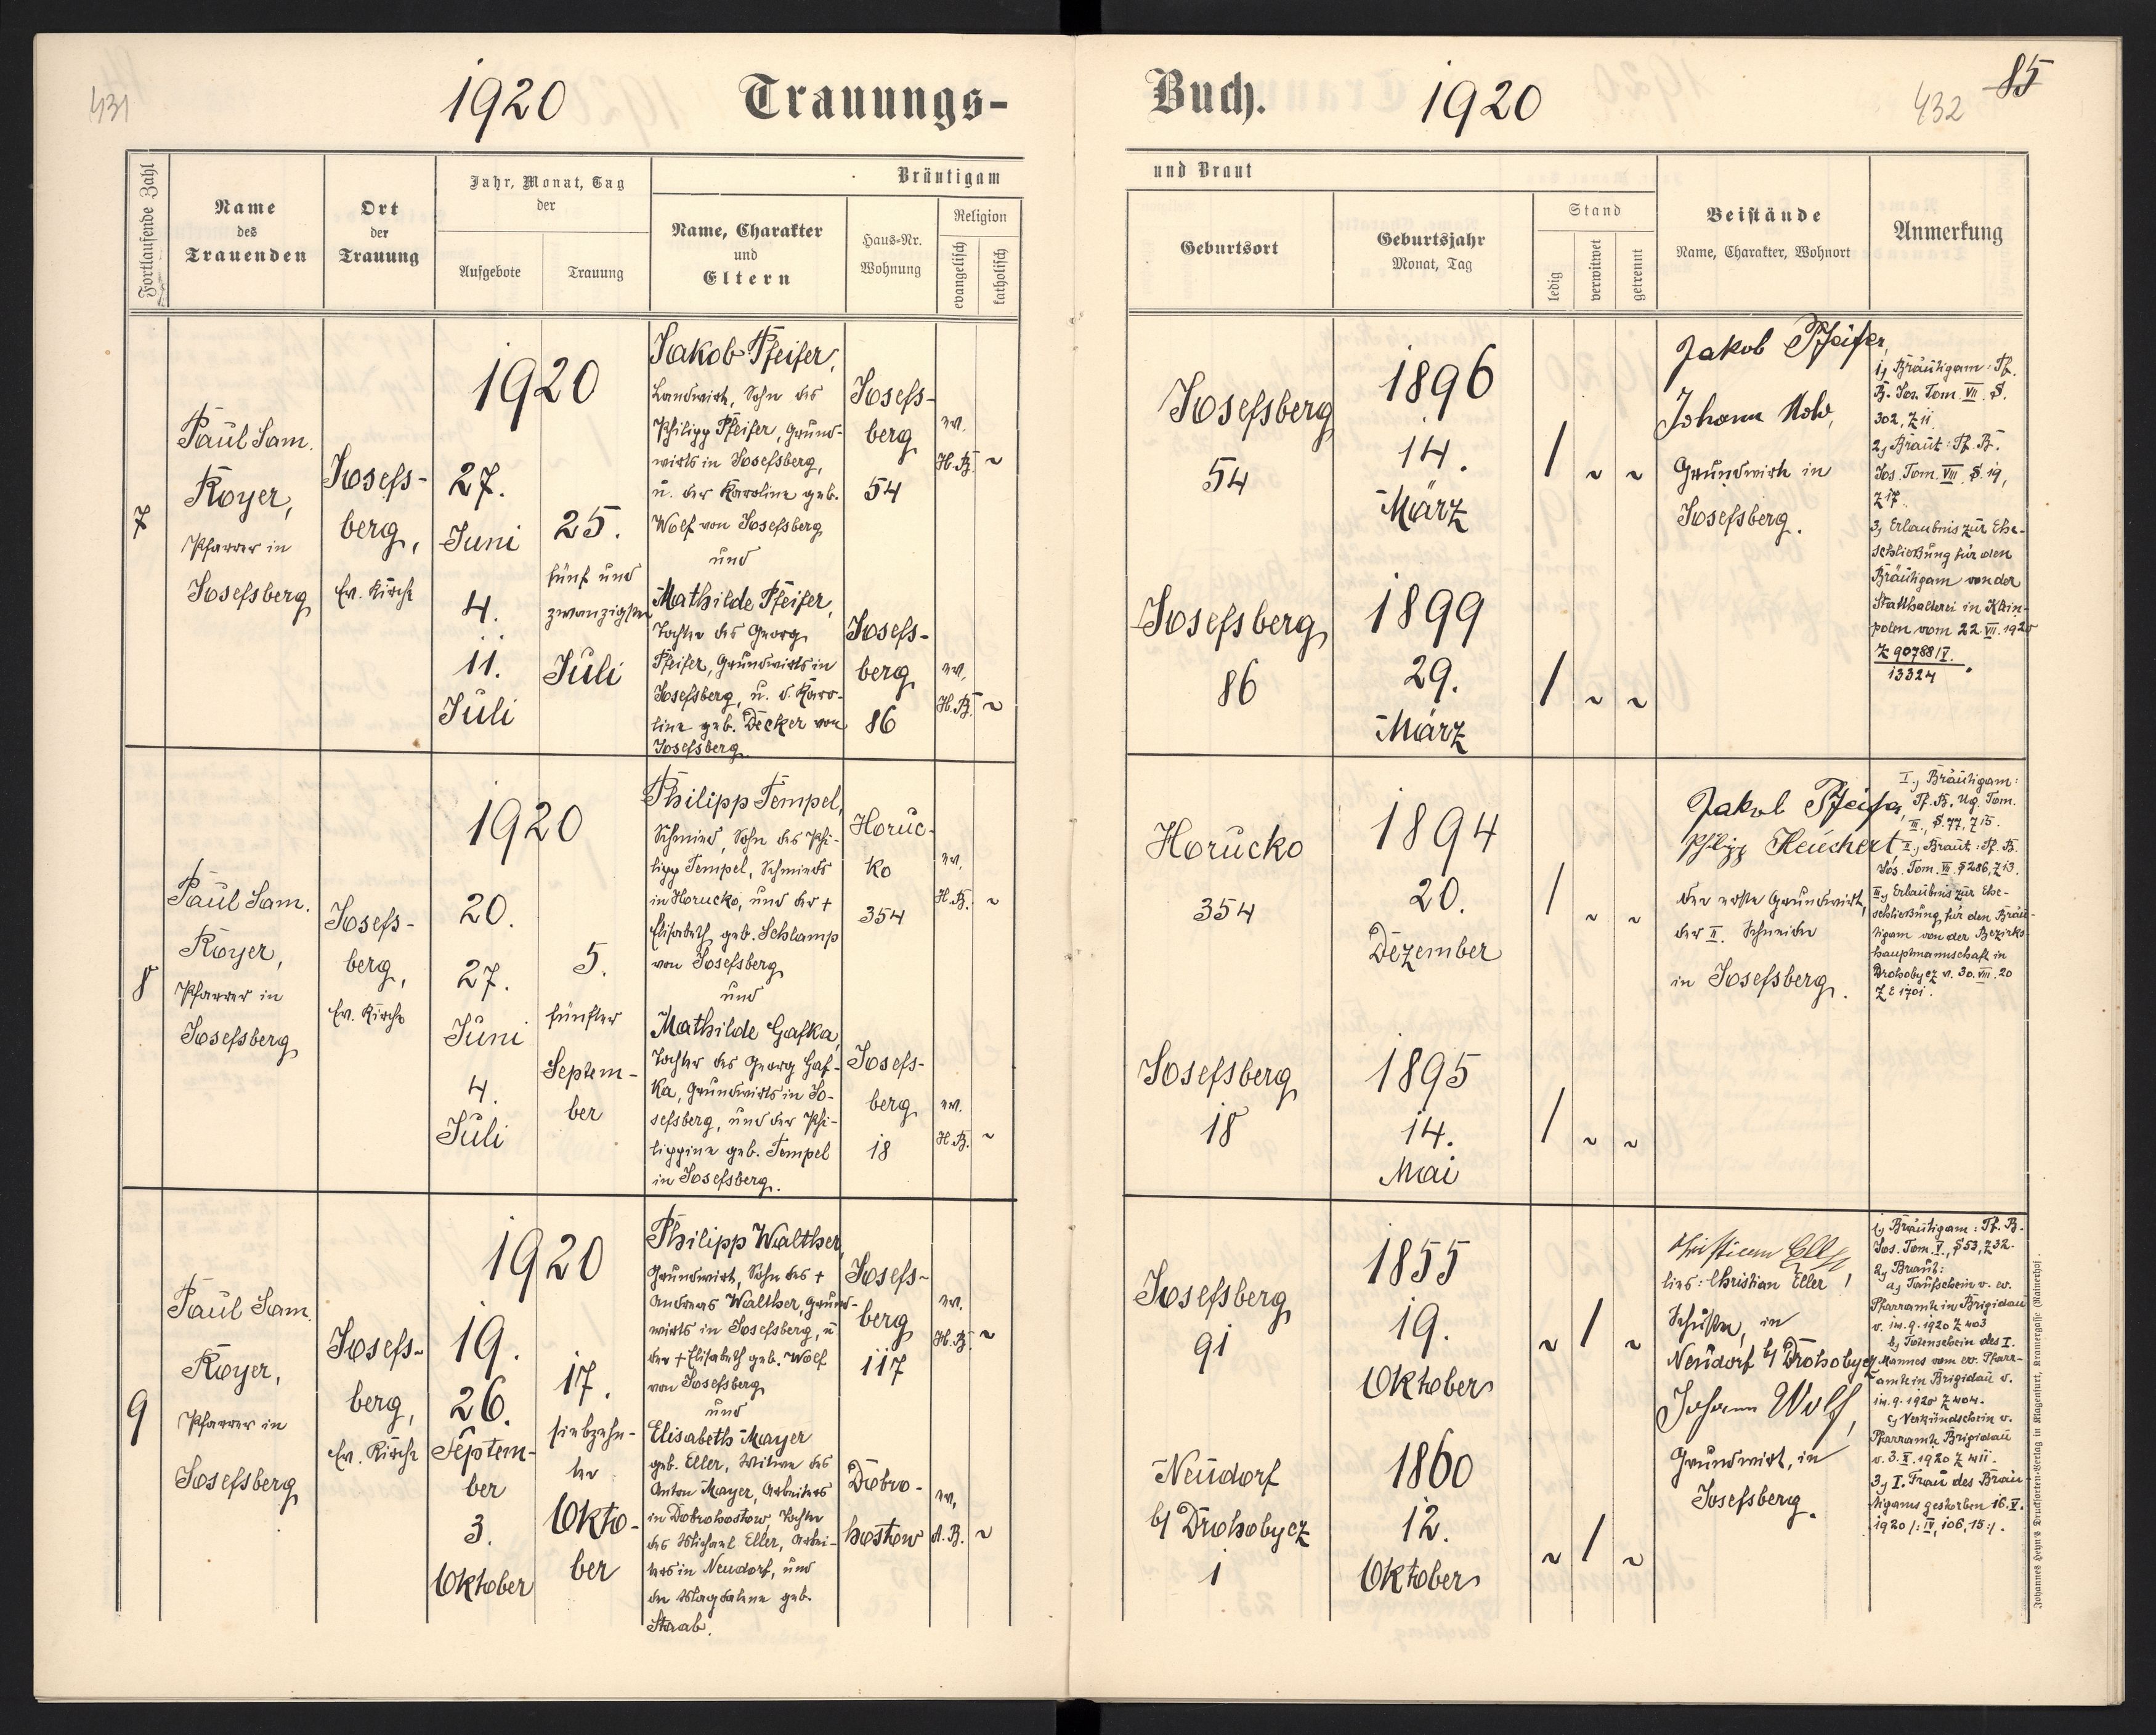 431
1920
Trauungs-
Fortlaufende Zahl
Name
des
Trauenden
Ort
der
Trauung
Jahr, Monat, Tag
der
Aufgebote
Trauung
Bräutigam
Name, Charakter
und
Eltern
Haus-Nr.
Wohnung
Religion
evangelisch
katholisch
Buch.
1920
432
85
und Braut
Geburtsort
Geburtsjahr
Monat, Tag
Stand
ledig
verwitwet
getrennt
Beistände
Name, Charakter, Wohnort
Anmerkung
7
Paul Sam.
Royer,
Pfarrer in
Josefsberg
Josefs-
berg,
Ev. Kirche
1920
27.
Juni
4.
11.
Juli
25.
fünf und
zwanzigster
Juli
Jakob Pfeifer,
Landwirt, Sohn des
Philipp Pfeifer, Grund-
wirts in Josefsberg,
u. der Karoline geb.
Wolf von Josefsberg
und
Mathilde Pfeifer,
Tochter des Georg
Pfeifer, Grundwirts in
Josefsberg, u. d. Karo-
line geb. Decker von
Josefsberg.
Josefs-
berg
54
Josefs-
berg
86
ev.
H.B. ~
ev.
H.B. ~
Josefsberg
54
Josefsberg
86
1896
14.
März
1899
29.
März
/ ~ ~
/ ~ ~
Jakob Pfeifer,
Johann
Grundwirth in
Josefsberg.
1, Bräutigam: Pf.
B. Jos. Tom. VII. S.
302, Z 11.
2, Braut: Pf. B.
Jos. Tom. VIII. S. 19,
Z 17.
3, Erlaubnis zur Ehe-
schließung für den
Bräutigam von der
Statthalterei in Klein-
polen vom 22. VII. 1920
Z 90788/V.
13324
8
Paul Sam.
Royer,
Pfarrer in
Josefsberg
Josefs-
berg,
Ev. Kirche
1920
20.
27.
Juni
4.
Juli
5.
fünfter
Septem-
ber
Philipp Tempel,
Schmied, Sohn des Phi-
lipp Tempel, Schmieds
in Horucko, und der +
Elisabeth geb. Schlamp
von Josefsberg
und
Mathilde Gafka,
Tochter des Georg Gaf-
ka, Grundwirts in Jo-
sefsberg, und der Phi-
lippine geb. Tempel
in Josefsberg.
Horuc-
ko
354
Josefs-
berg
18
ev.
H.B. ~
ev.
H.B. ~
Horucko
354
Josefsberg
18
1894
20.
Dezember
1895
14.
Mai
/ ~ ~
/ ~ ~
Jakob Pfeifer,
Philipp Keuchert
der erste Grundwirth,
der II. Schneider
in Josefsberg.
I., Bräutigam:
Pf. B. Ug. Tom.
III., S. 77, Z 15.
II., Braut: Pf. B.
Jos. Tom. VII. S 286, Z 13.
III, Erlaubnis zur Ehe-
schließung für den Bräu-
tigam von der Bezirks-
hauptmannschaft in
Drohobycz v. 30. VIII. 20
9
Paul Sam.
Royer,
Pfarrer in
Josefsberg
Josefs-
berg,
Ev. Kirche
1920
19.
26.
Septem-
ber
3.
Oktober
17.
siebzehn-
ter
Okto-
ber
Philipp Walther,
Grundwirt, Sohn des +
Andreas Walther, Grund-
wirts in Josefsberg, u
der + Elisabeth geb. Wolf
von Josefsberg
und
Elisabeth Mayer
geb. Eller, Witwe des
Anton Mayer, Arbeiters
in Dobrohostow, Tochter
des Michael Eller, Arbei-
ters in Neudorf, und
der Magdalena geb.
Straab.
Josefs-
berg
117
Dobro-
hostow
ev.
H.B. ~
ev.
A.B. ~
Josefsberg
91
Neudorf
b/ Drohobycz
1
1855
19.
Oktober
1860
12.
Oktober
~ / ~
~ / ~
Christian Eller
lies: Christian Eller!
Schuster, in
Neudorf b/ Drohobycz
Johann Wolf,
Grundwirt, in
Josefsberg.
1, Bräutigam: Pf. B.
Jos. Tom. V., S 53, Z 32.
2, Braut:
a, Taufschein v. ev.
Pfarramte in Brigidau
v. 14. 9. 1920 Z 403
b, Totenschein des I.
Mannes vom ev. Pfarr-
amte in Brigidau v.
14. 9. 1920 Z 404.
c, Verkündschein v.
Pfarramte Brigidau
v. 3. X. 1920 Z 411.
3, I. Frau des Bräu-
tigams gestorben 16. V.
1920 /: IV, 106, 15:/.
Johannes Heyn's Drucksorten-Verlag in Klagenfurt, Kramergasse (Rainerhof).